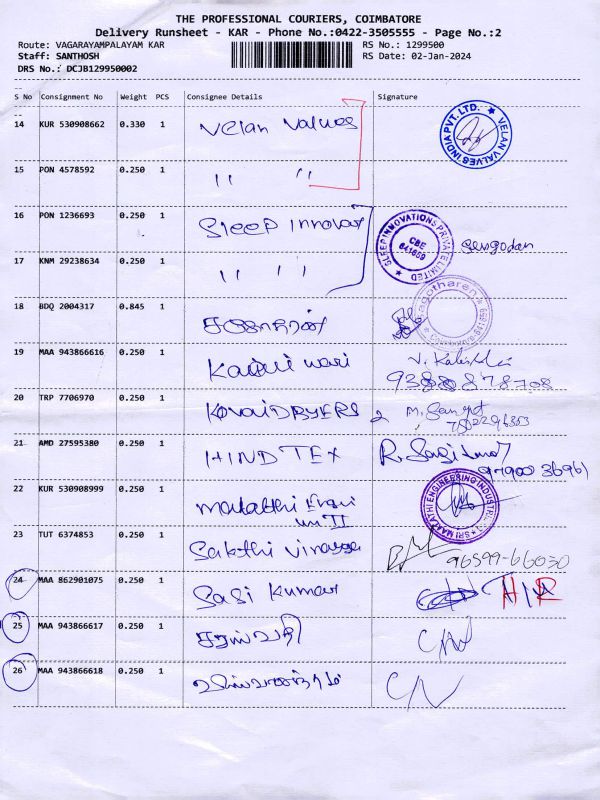 THE PROFESSIONAL COURIERS, COIMBATORE
Delivery Runsheet - KAR - Phone No.:0422-3505555 - Page No.:2
Route: VAGARAYAMPALAYAM KAR
RS No.: 1299500
Staff: SANTHOSH
RS Date: 02-Jan-2024
DRS No.: DCJB129950002
S No Consignment No Weight PCS Consignee Details Signature
14 KUR 530908662 0.330 1 Velan Valves
VELAN VALVES INDIA PVT. LTD.
15 PON 4578592 0.250 1 " "
16 PON 1236693 0.250 1 Sleep Innovat
SLEEP INNOVATIONS PRIVATE LIMITED CBE 641659
Sengodan
17 KNM 29238634 0.250 1 " "
18 BDQ 2004317 0.845 1
19 MAA 943866616 0.250 1
20 TRP 7706970 0.250 1 KOVAI DRYERS
21 AMD 27595380 0.250 1 HIND TEX
97900 36961
22 KUR 530908999 0.250 1 Malathi Engi
unit II
SRI MAALATHI ENGINEERING INDUSTRIES
23 TUT 6374853 0.250 1 Sakthi Vinayaga 96599-66030
24 MAA 862901075 0.250 1 Sasi Kumar
25 MAA 943866617 0.250 1 சரஸ்வதி
26 MAA 943866618 0.250 1